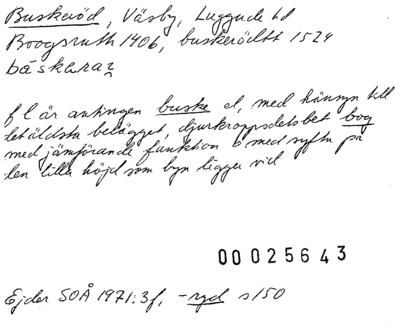 Buskeröd, Väsby, Luggude hd
Boogsruth 1406, buskerödtt 1524
båskaraz
f l är antingen buske el, med hänsyn till
det äldsta belägget, djurkroppsdelsbet bog
med jämförande funktion o med syftn på
den lilla höjd som byn ligger vid
00025643
Ejder SOÅ 1971:3f, -ryd s150